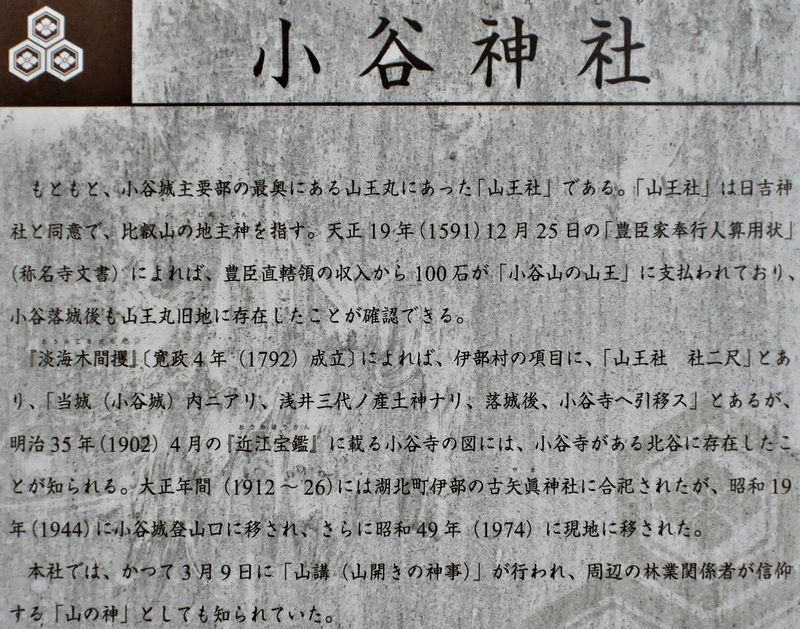 小谷神社
もともと、小谷城主要部の最奥にある山王丸にあった「山王社」である。「山王社」は日吉神
社と同意で、比叡山の地主神を指す。天正19年(1591)12月25日の「豊臣家奉行人算用状」
(称名寺文書)によれば、豊臣直轄領の収入から100石が「小谷山の山王」に支払われており、
小谷落城後も山王丸旧地に存在したことが確認できる。
『淡海木間攫』〔寛政4年(1792)成立〕によれば、伊部村の項目に、「山王社 社二尺」とあ
り、「当城(小谷城)内ニアリ、浅井三代ノ産土神ナリ、落城後、小谷寺へ引移ス」とあるが、
明治35年(1902)4月の『近江宝鑑』に載る小谷寺の図には、小谷寺がある北谷に存在したこ
とが知られる。大正年間(1912～26)には湖北町伊部の古矢眞神社に合祀されたが、昭和19
年(1944)に小谷城登山口に移され、さらに昭和49年(1974)に現地に移された。
本社では、かつて3月9日に「山講(山開きの神事)」が行われ、周辺の林業関係者が信仰
する「山の神」としても知られていた。